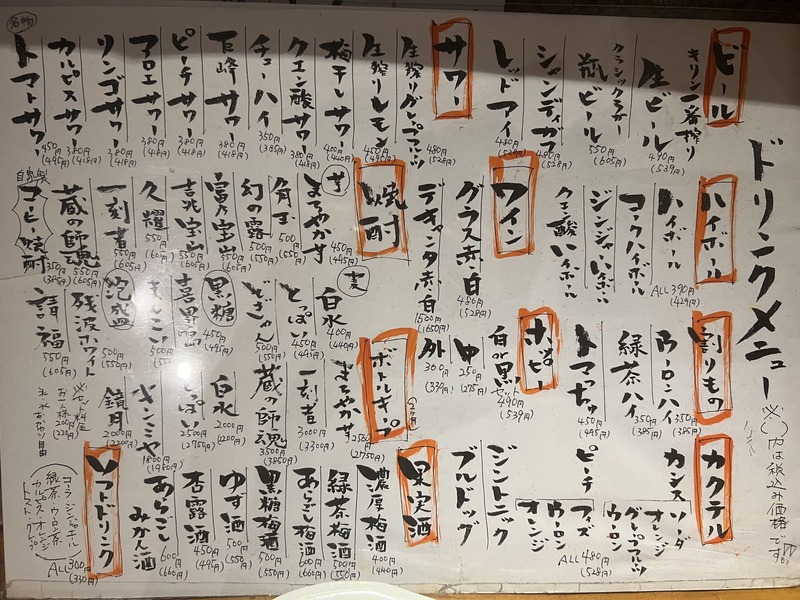 ドリンクメニュー
※( )内は税込み価格です
ビール
キリン一番搾り
生ビール 490円(539円)
クラシックラガー
瓶ビール 550円(605円)
シャンディガフ 480円(528円)
レッドアイ 480円(528円)
サワー
生搾りグレープフルーツ 480円(528円)
生搾りレモン 450円(495円)
梅干しサワー 400円(440円)
クエン酸サワー 380円(418円)
チューハイ 350円(385円)
巨峰サワー 380円(418円)
ピーチサワー 380円(418円)
アロエサワー 380円(418円)
リンゴサワー 380円(418円)
カルピスサワー 380円(418円)
名物
トマトサワー 450円(495円)
ハイボール
ハイボール
コークハイボール
ジンジャーハイボール
クエン酸ハイボール
ALL 390円(429円)
ワイン
グラス赤・白 480円(528円)
デキャンタ赤・白 1500円(1650円)
焼酎
芋
まろやかせ 450円(495円)
角玉 500円(550円)
幻の露 500円(550円)
富乃宝山 550円(605円)
吉兆宝山 550円(605円)
久耀 550円(605円)
一刻者 550円(605円)
蔵の師魂 550円(605円)
自家製
コーヒー焼酎 350円(385円)
麦
白水 400円(440円)
とっぱい 450円(495円)
どぎゃん 500円(550円)
黒糖 450円(495円)
喜界島
まんこい 500円(550円)
泡盛 500円(550円)
残波ホワイト
請福 550円(605円)
割りもの
ウーロンハイ 350円(385円)
緑茶ハイ 350円(385円)
トマっちゅ 450円(495円)
ホッピー
白or黒 セット490円(539円)
中 250円(275円)
外 300円(330円)
ボトルキープ
まろやかせ 2500円(2750円)
一刻者 3000円(3300円)
蔵の師魂 3500円(3850円)
白水 2000円(2200円)
とっぱい 2500円(2750円)
キンミヤ 1800円(1980円)
鏡月 2000円(2200円)
カクテル
カシス
ソーダ
オレンジ
グレープフルーツ
ウーロン
ピーチ
フズ
ウーロン
オレンジ
ALL 480円(528円)
ジントニック
ブルドッグ
果実酒
濃厚梅酒 400円(440円)
緑茶梅酒 500円(550円)
あらごし梅酒 600円(660円)
黒糖梅酒 500円(550円)
ゆず酒 500円(550円)
杏露酒 450円(495円)
あらごしみかん酒 600円(660円)
ソフトドリンク
コーラ ジンジャエール
緑茶 ウーロン茶
カルピス オレンジ
トマト グレープ
ALL 300円(330円)